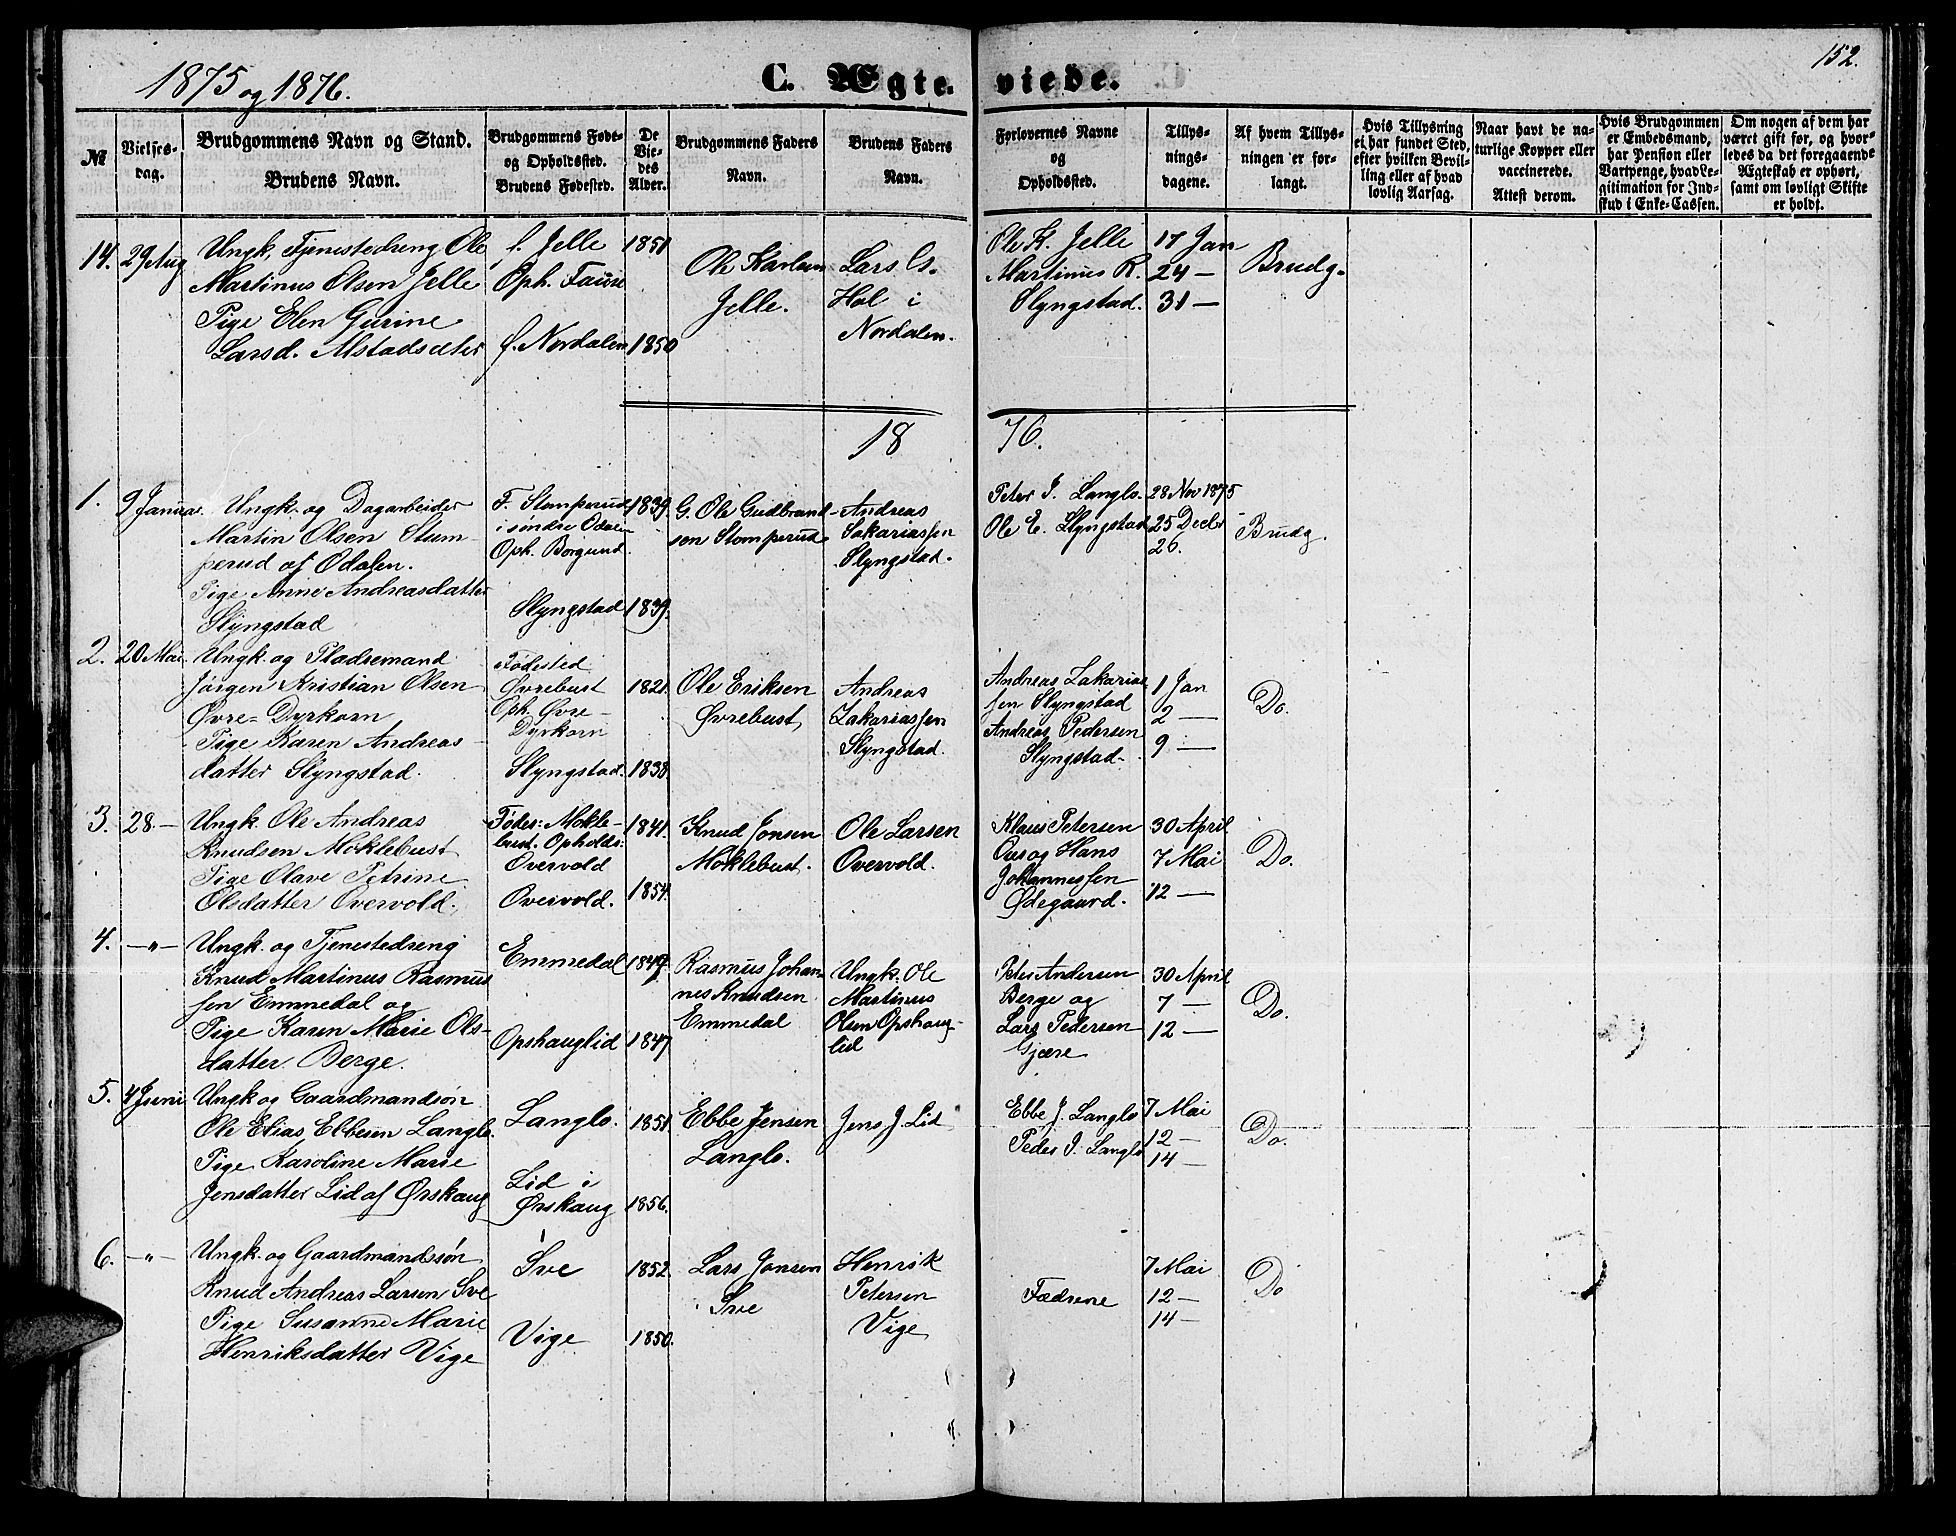 1875 og 1876.
C. Ægte- viede.
152.
№
Vielses-
dag.
Brudgommens Navn og Stand.
Brudens Navn.
Brudgommens Føde-
og Opholdssted.
Brudens Fødested.
De
Vie-
des
Alder.
Brudgommens Faders
Navn.
Brudens Faders
Navn.
Forlovernes Navne
og
Opholdssted.
Tillys-
nings-
dagene.
Af hvem Tillys-
ningen er for-
langt.
Hvis Tillysning
ei har fundet Sted,
efter hvilken Bevil-
ling eller af hvad
lovlig Aarsag.
Naar havt de na-
turlige Kopper eller
vaccinerede.
Attest derom.
Hvis Brudgommen
er Embedsmand,
har Pension eller
Vartpenge, hvad Le-
gitimation for Ind-
skud i Enke-Cassen.
Om nogen af dem har
været gift før, og hvor-
ledes da det foregaaende
Ægteskab er ophørt,
samt om lovligt Skifte
er holdt.
14. 29 Aug
Ungk. Tjenestedreng Ole
Martinus Olsen Jelle
Pige Elen Gurine
Larsd. Alstadsæter
f. Jelle
Oph. Fause
f. Nordalen
1851
1850
Ole Karlsen
Jelle.
Lars G.
Hol i
Nordalen.
Ole K. Jelle
Martinus R.
Slyngstad.
17 Jan
24 —
31 —
Brudg.
18 76.
1. 9 Januar
Ungk. og Dagarbeider
Martin Olsen Stum-
perud af Odalen.
Pige Anne Andreasdatter
Slyngstad
F. Stomperud
i søndre Odalen
Oph. Borgund.
Slyngstad
1839.
1839.
G. Ole Gudbrand-
sen Stomperud
Andreas
Sakariassen
Slyngstad.
Peter I. Langlo.
Ole E. Slyngstad
28 Nov 1875
25 Decbr
26.
Brudg.
2. 20 Mai
Ungk. og Pladsemand
Jørgen Kristian Olsen
Øvre-Dyrkorn
Pige Karen Andreas-
datter Slyngstad.
Fødested
Øvrebust
Oph. Øvre-
Dyrkorn
Slyngstad.
1821.
1838
Ole Eriksen
Øvrebust
Andreas
Zakariassen
Slyngstad.
Andreas Zakarias
sen Slyngstad
Andreas Pedersen
Slyngstad-
1 Jan
2 —
9 —
Do.
3. 28. —
Ungk. Ole Andreas
Knudsen Moklebust
Pige Olave Petrine
Olsdatter Overvold.
Fødes: Mokle-
bust. Opholds:
Overvold
Overvold.
1841.
1854.
Knud Jonsen
Moklebust.
Ole Larsen
Overvold.
Klaus Petersen
Overog Hans
Johannessen
Ødegaard.
30 April
7 Mai
12 —
Do.
4. —"—
Ungk. og Tjenestedreng
Knud Martinus Rasmus
sen Emmedal og
Pige Karen Marie Ols-
datter Berge.
Emmedal
Opshauglid
1847
Rasmus Johan
nes Knudsen
Emmedal
Ungk. Ole
Martinus
Olsen Opshaug-
lid
Peter Andersen
Berge og
Lars Pedersen
Gjære
30 April
7 —
12 —
Do.
5. 4 Juni
Ungk og Gaardmandsøn
Ole Elias Ebbesen Langlo.
Pige Karoline Marie
Jensdatter Lid af Ørskaug
Langlo.
Lid i
Ørskaug
1851.
1856.
Ebbe Jensen
Langlo.
Jens J. Lid
Ebbe J. Langlo
Peder I. Langlo
7 Mai
12 —
14 —
Do.
6. —"—
Ungk. og Gaardmandssøn
Knud Andreas Larsen Sve
Pige Susanne Marie
Henriksdatter Vige
Sve
Vige
1852.
1850.
Lars Jonsen
Sve
Henrik
Petersen
Vige
Fædrene
7 Mai
12 —
14 —
Do